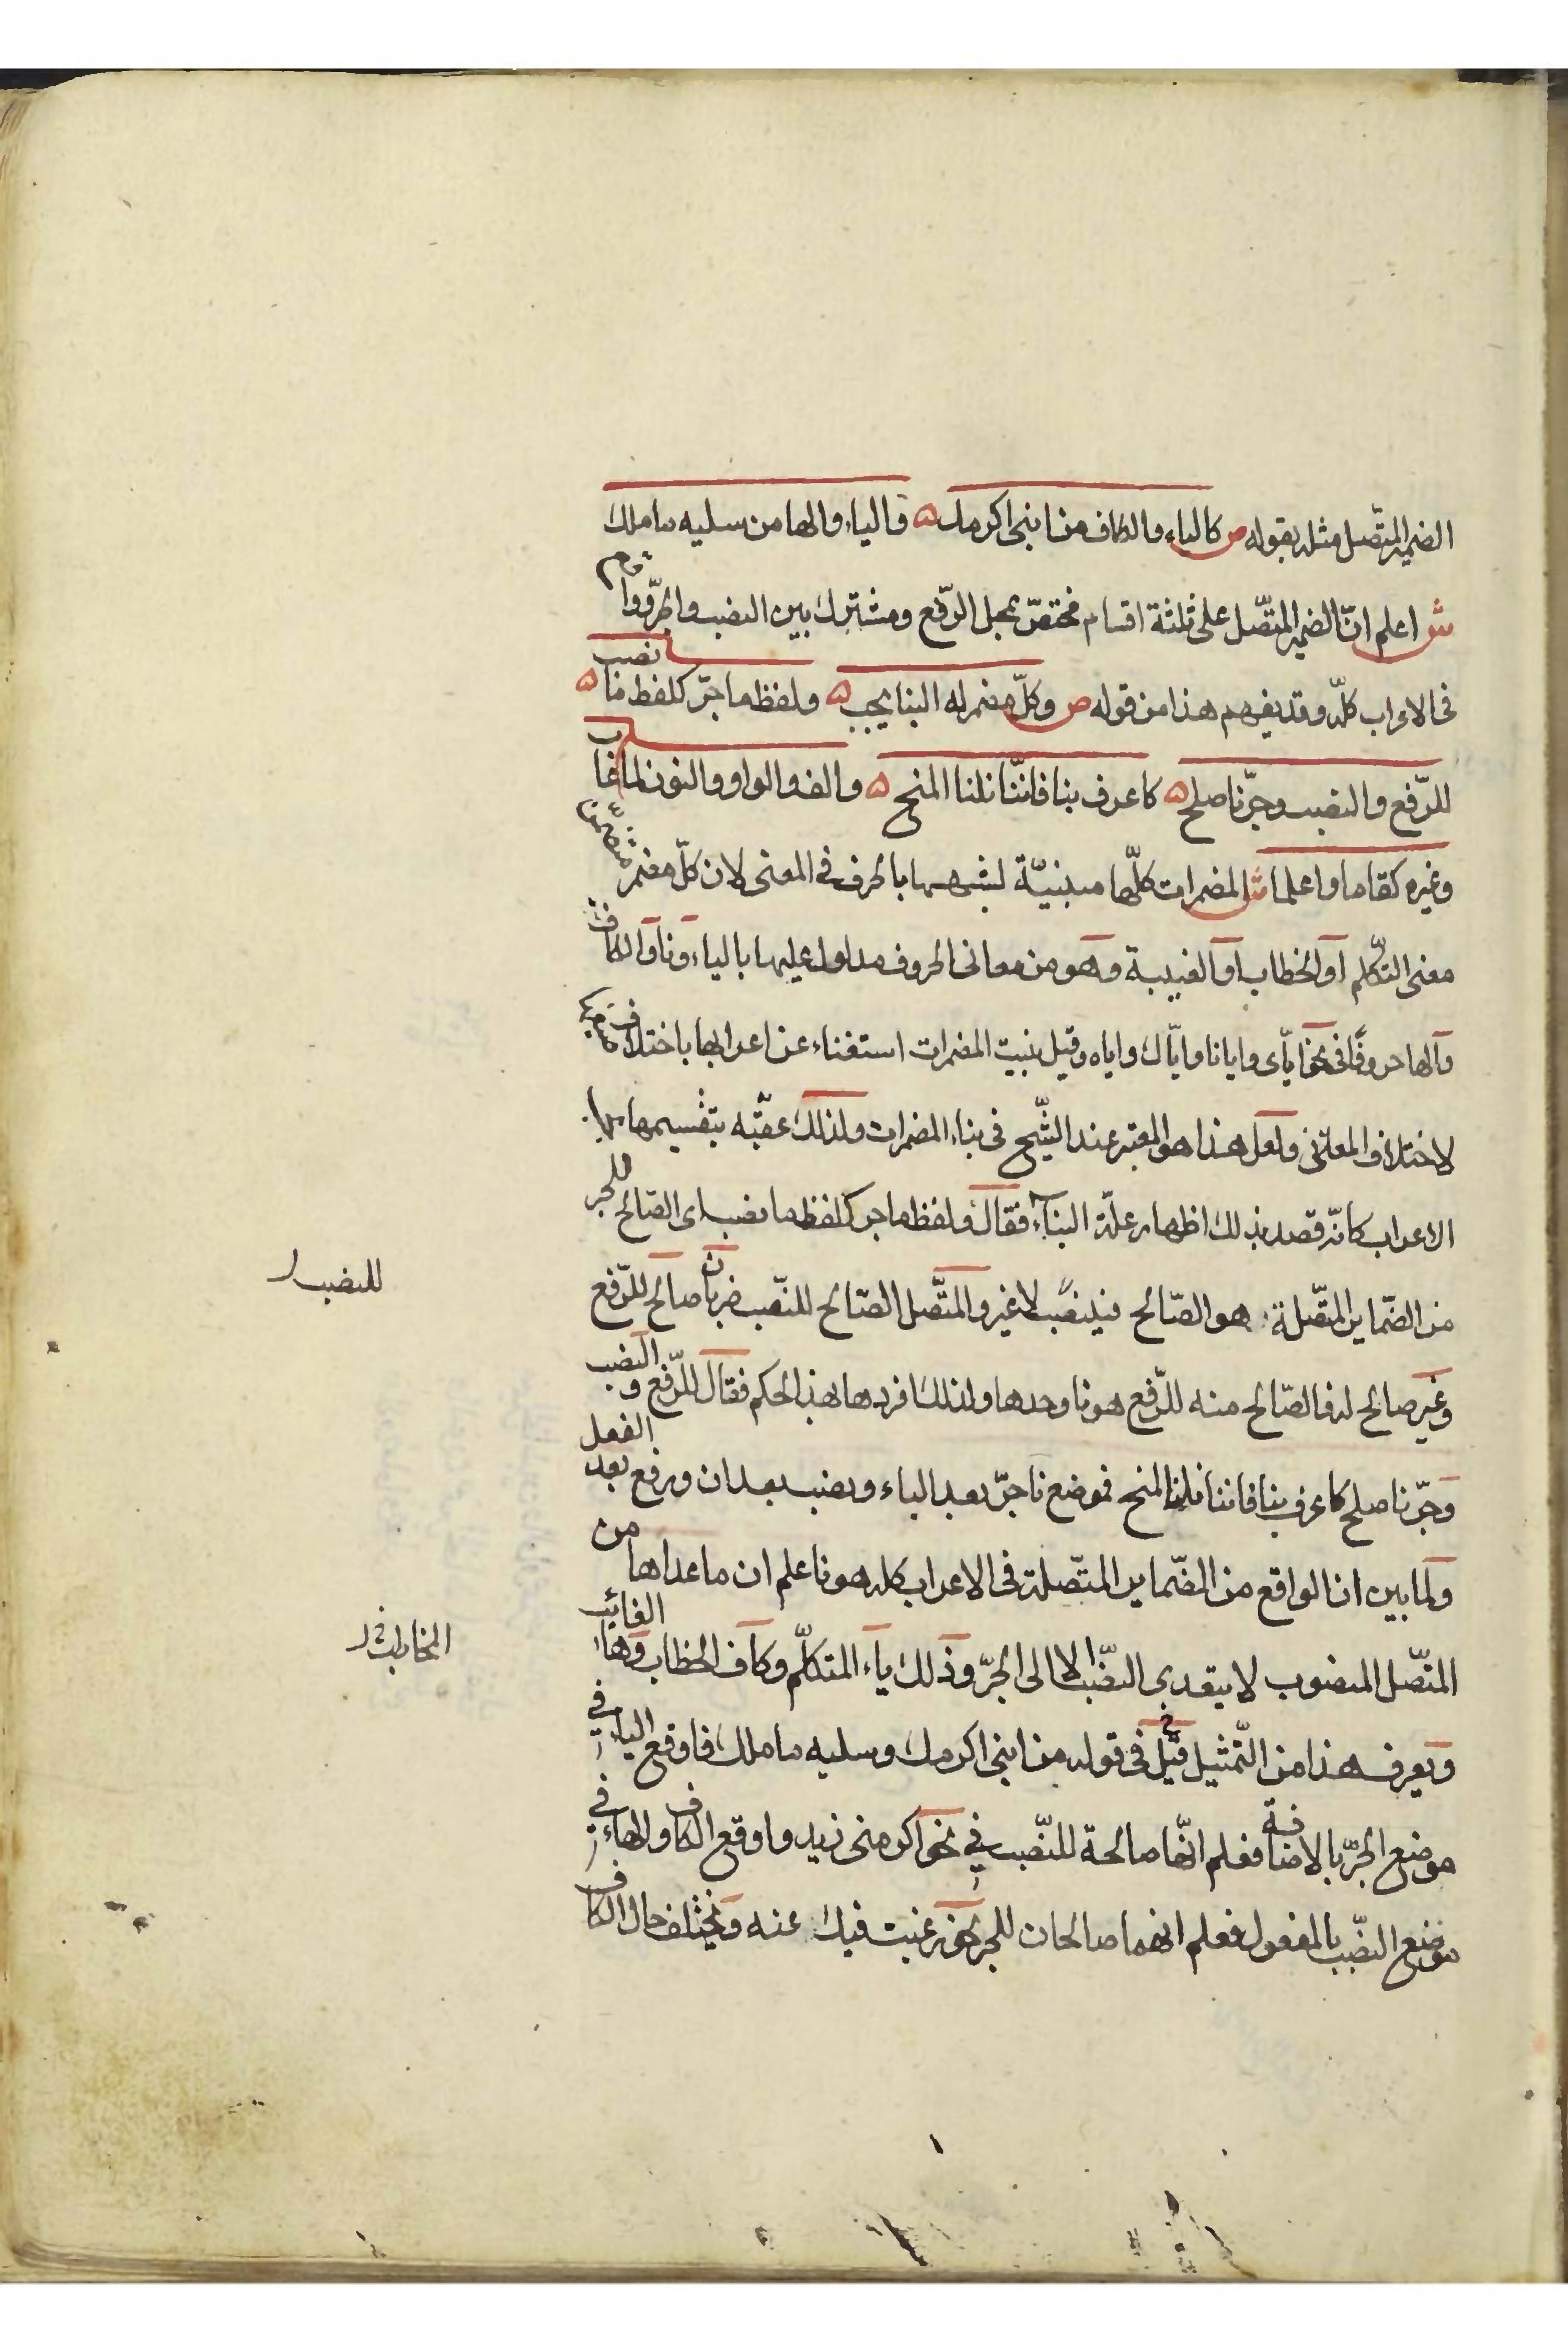 الضمير المتّصل مثله بقوله ص كالياء والكاف من ابنى اكرمك ه والياء والها من سليه ما ملك
ش اعلم انّ الضمير المتّصل على ثلثة اقسام مختصّ بمحل الرّفع ومشترك بين النصب والجرّ وواقع
فى الاعراب كلّه وقد يفهم هذا من قوله ص وكلّ مضمر له البنا يجب ه ولفظ ما جرّ كلفظ ما نصب ه
للرّفع والنصب وجرّ نا صلح ه كاعرف بنا فانّنا نلنا المنح ه والف والواو والنون لما غاب
وغيره كقاما واعلما ش المضمرات كلّها مبنيّة لشبهها بالحرف فى المعنى لان كلّ مضمر متضمّن
معنى التكلّم او الخطاب او الغيبة وهو من معانى الحروف مدلول عليها بالياء ونا والكاف
والها حروفًا فى نحو ايّاى وايانا وايّاك واياه وقيل بنيت المضمرات استغناء عن اعرابها باختلاف صيغها
لاختلاف المعانى ولعل هذا هو المعتبر عند الشّيخ فى بناء المضمرات ولذلك عقّبه بتقسيمها بها
الاعراب كانّه قصد بذلك اظهار علّة البناء فقال ولفظ ما جر كلفظ ما نصب اى الصّالح للجر
من الضّماير المتّصلة هو الصّالح للنصب لا غير والمتّصل الصّالح للنّصب ضربان صالح للرّفع
وغير صالح له فالصّالح منه للرّفع هو نا وحدها ولذلك افردها بهذا الحكم فقال للرّفع والنصب
وجرّ نا صلح كاعرف بنا فاننا نلنا المنح فموضع نا جرّ بعد الباء ونصب بعد ان ورفع بعد الفعل
ولما بين ان الواقع من الضّماير المتّصلة فى الاعراب كله هو نا علم ان ما عداها من
المتّصل المنصوب لا يتعدى النصّب الا الى الجرّ وذلك ياء المتكلّم وكاف الخطاب وهاء الغائب
ويعرف هذا من التّمثيل قبل فى قوله من ابنى اكرمك وسليه ما ملك فاوقع الياء فى
موضع الجرّ بالاضافة فعلم انّها صالحة للنّصب فى نحو اكرمنى زيد واوقع الكاف والهاء فى
موضع النصّب بالمفعول فعلم انهما صالحان للجر نحو رغبت فيك عنه ويختلف حال الكاف
للنصب
المخاطب